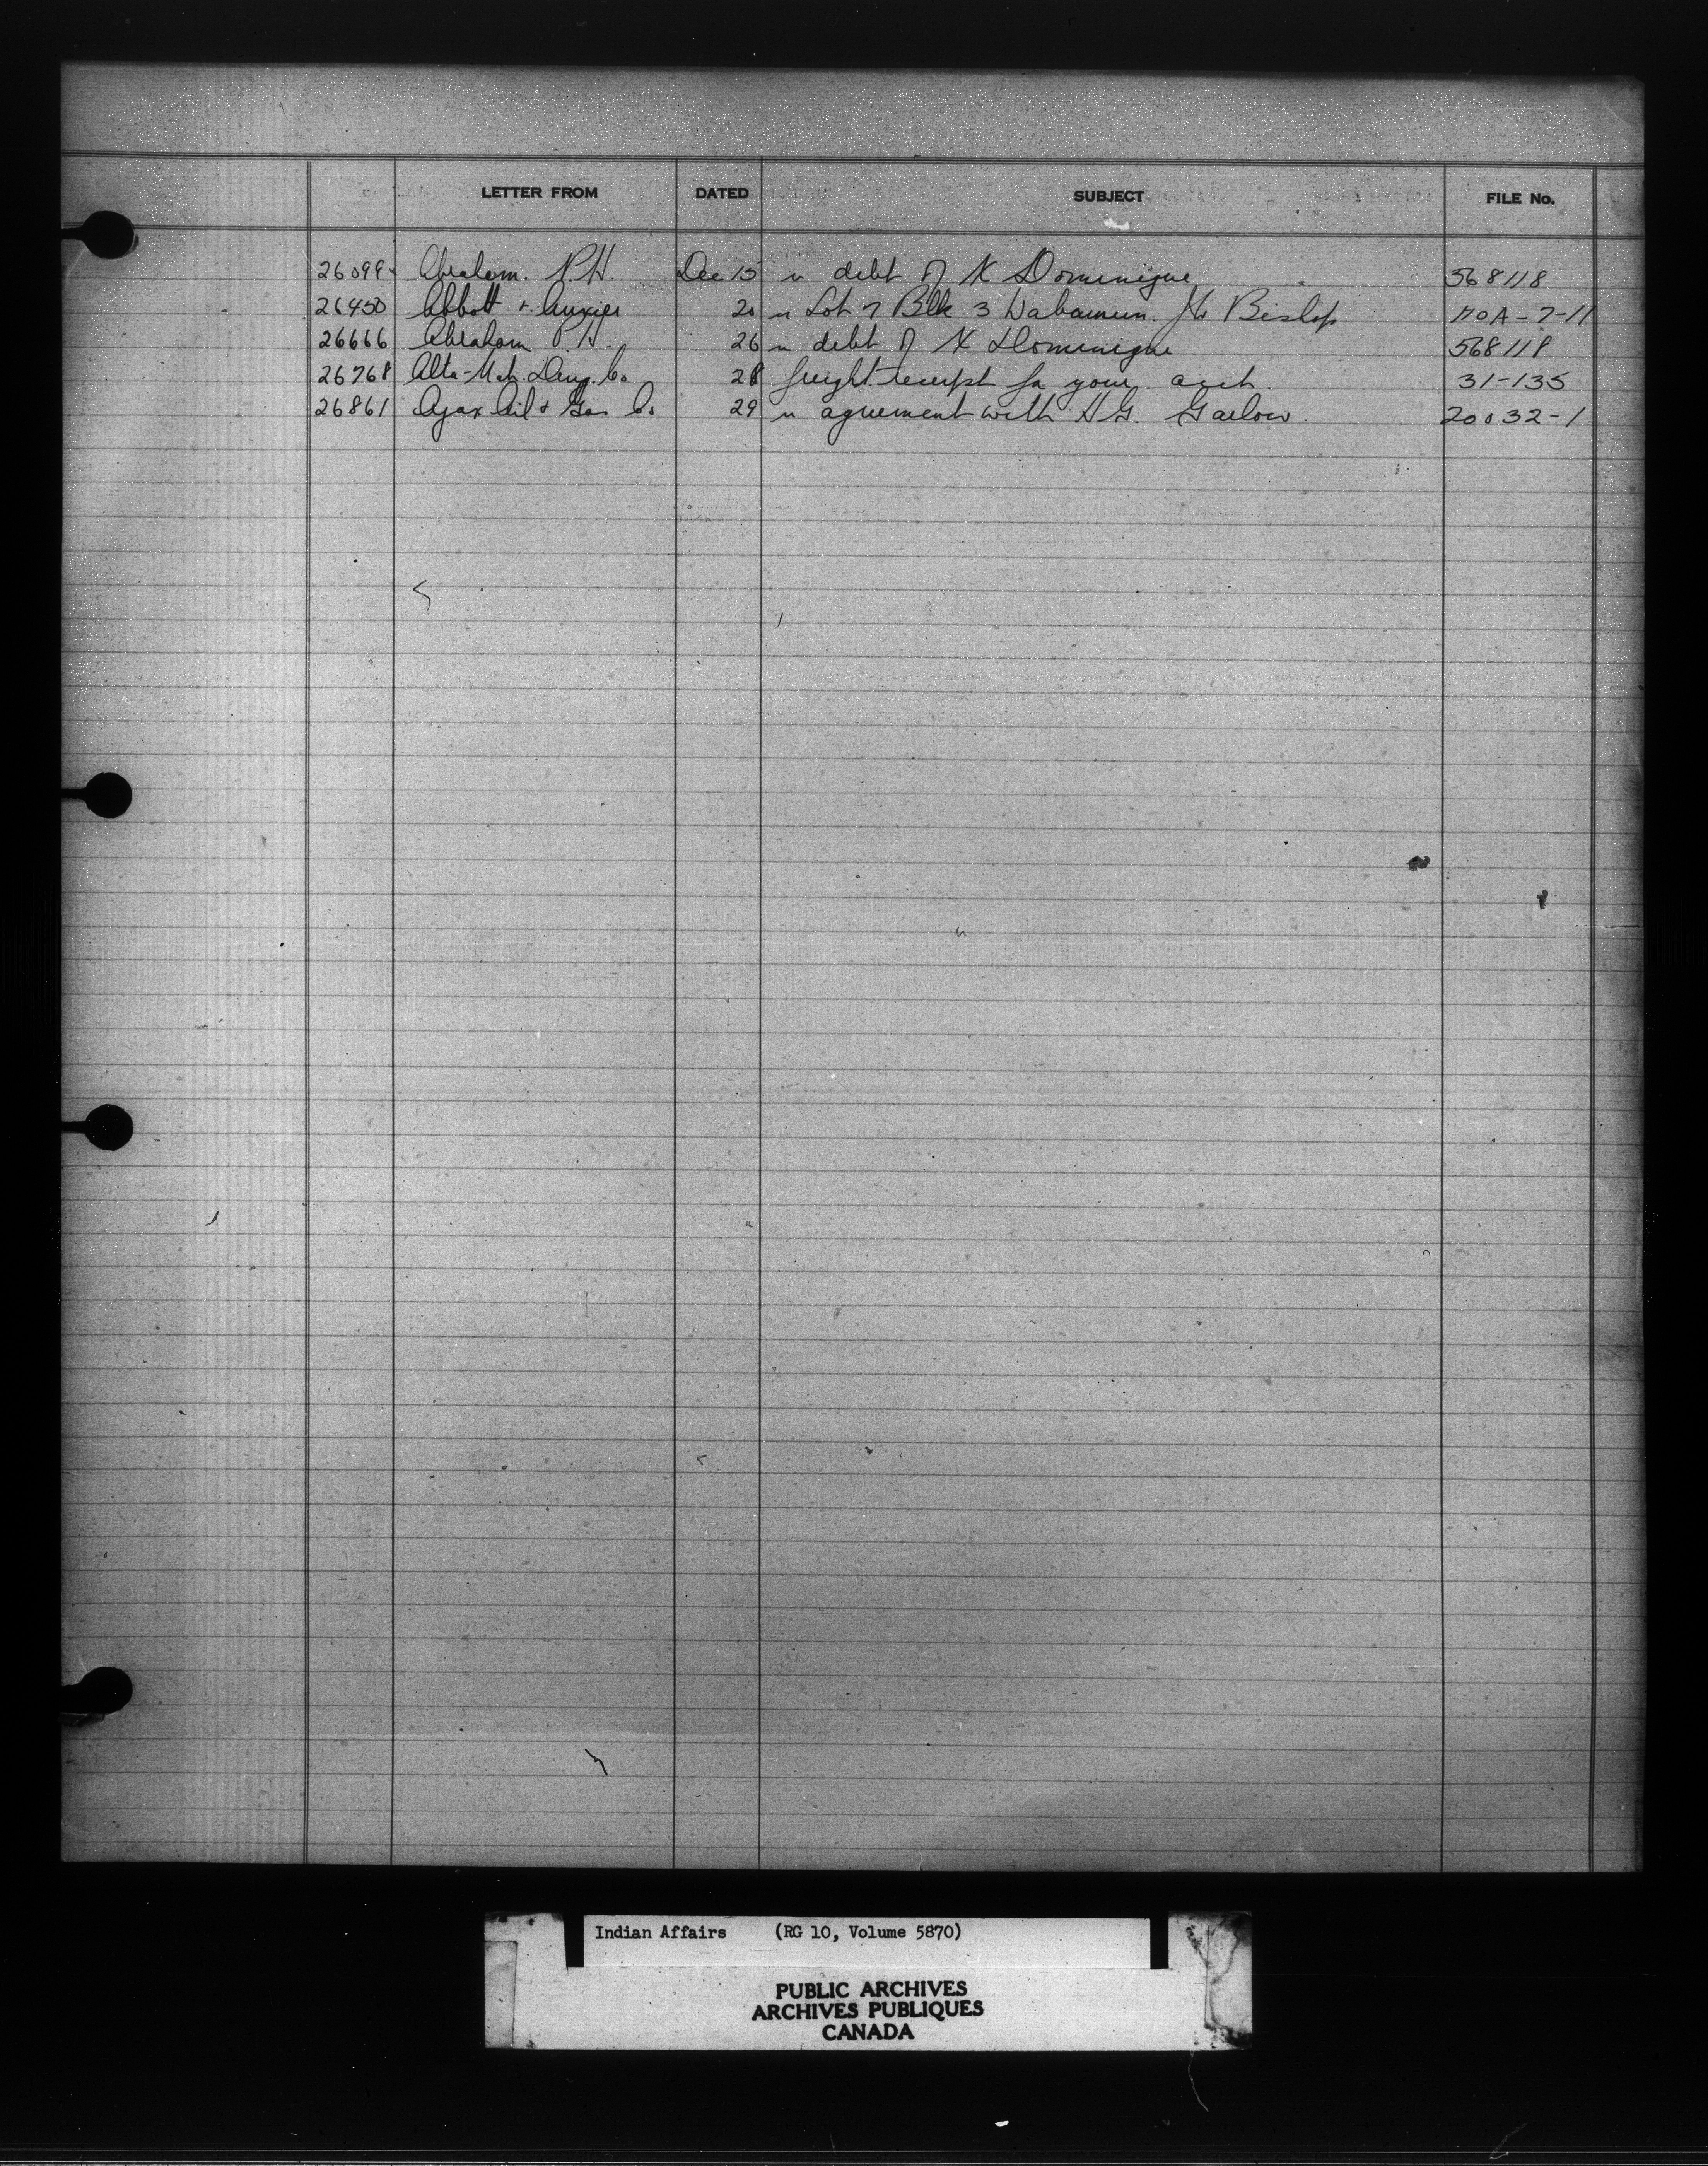 LETTER FROM DATED SUBJECT FILE No.
26099 Abraham. P.H. Dec 15 re debt of X Dominique 568118
26450 Abbott + Auxier 20 re Lot 7 Blk 3 Wabamun. Bishop HOA-7-11
26666 Abraham P.H. 26 re debt of X Dominique 568118
26768 Alta-Meh. Drug. Co 28 freight receipt for your acct. 31-135
26861 Ajax Oil & Gas Co 29 re agreement with H.G. Garlow. 20032-1
Indian Affairs (RG 10, Volume 5870)
PUBLIC ARCHIVES
ARCHIVES PUBLIQUES
CANADA